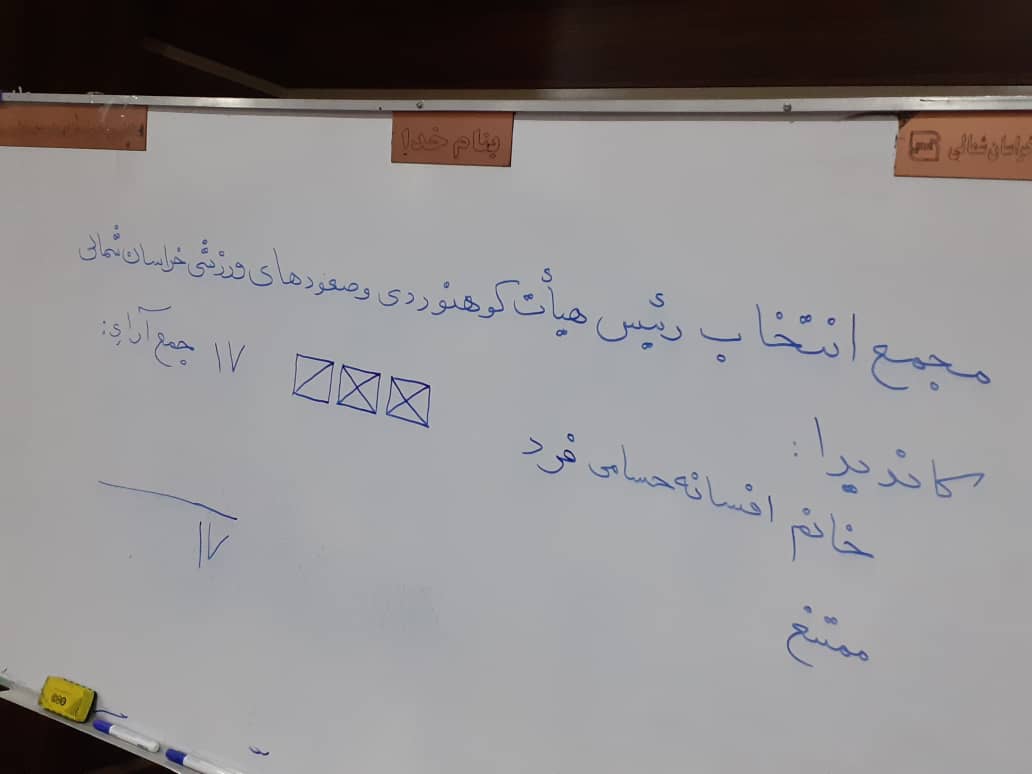 بنام خدا
خراسان شمالی
مجمع انتخاب رئیس هیأت کوهنوردی و صعودهای ورزشی خراسان شمالی
کاندیدا :
جمع آراء:
خانم افسانه حسامی فرد ۱۷
ممتنع
۱۷